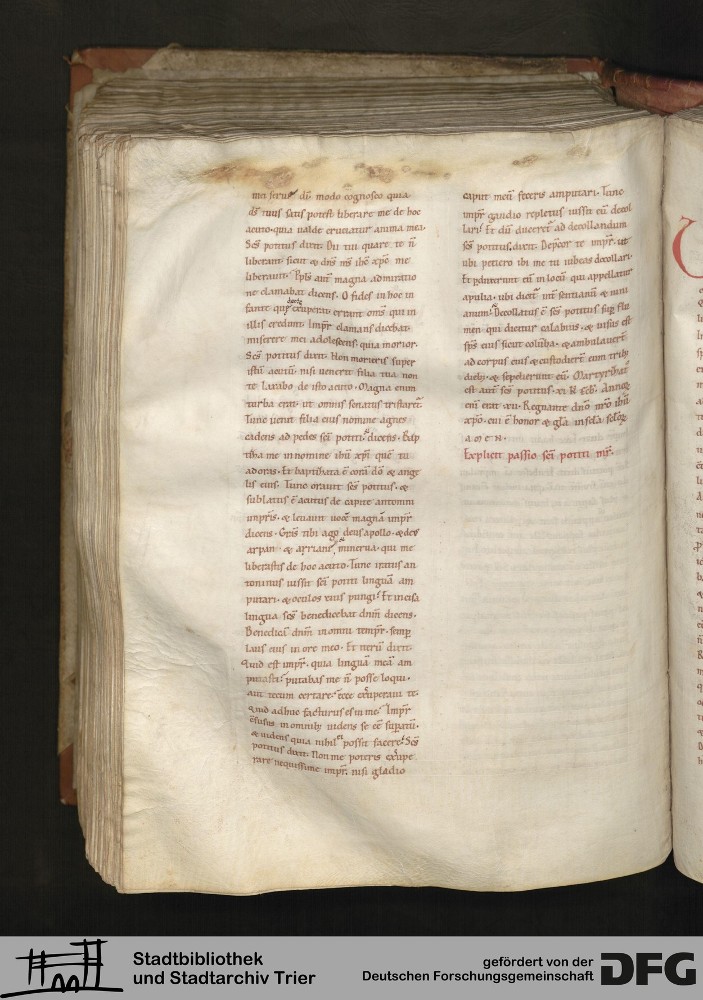 mei serue dī modo cognosco quia
ds̄ tuus satis potest liberare me de hoc
acuto· quia ualde cruciatur anima mea·
Scs̄ potitus dixit· Dii tui quare te n̄
liberant sicut & dn̄s ms̄ ihc̄ xp̄c me
liberauit· Ppl̄s aut̄ magna admiratio
ne clamabat dicens· O fides in hoc in
fante que exuperat errant om̄s qui in
illis credunt· Impr̄ clamans dicebat·
miserere mei adolescens· quia morior·
Scs̄ potitus dixit· Non morieris super
istū acutū· nisi uenerit filia tua non
te leuabo de isto acuto· Magna enim
turba erat· ut omnis senatus tristaret̄
Tunc uenit filia eius nomine agnes
cadens ad pedes scī potiti· dicens· Bap
tiza me in nomine ihū xp̄i quē tu
adoras· Et baptizata ē corā dō & ange
lis eius· Tunc orauit scs̄ potitus· &
sublatus ē acutus de capite antonini
impr̄is· & leuauit uocē magnā impr̄
dicens· Grās tibi ago deus apollo· &
arpan· & arriani minerua· qui me
liberastis de hoc acuto· Tunc iratus an
toninus iussit scī potiti linguā am
putari· & oculos eius pungi· Et incisa
lingua scs̄ benedicebat dnm̄ dicens·
Benedicā dnm̄ in omni tempr̄· semp
laus eius in ore meo· Et iterū dixit·
Quid est impr̄· quia linguā meā am
putasti· putabas me n̄ posse loqui·
aut tecum certare· ecce exuperaui te·
Quid adhuc facturus es in me· Impr̄
confusus in omnib; uidens se eē supatū·
& uidens quia nihil ei possit facere· Scs̄
potitus dixit· Non me poteris exupe
rare nequissime impr̄· nisi gladio
caput meū feceris amputari· Tunc
impr̄ gaudio repletus iussit eū decol
lari· Et dū duceret̄ ad decollandum
scs̄ potitus· dixit· Depcor te impr̄· ut
ubi petiero ibi me iubeas decollari·
Et pduxerunt eū in locū qui appellatur
apulia· ubi dicit̄
anum· Decollatus ē scs̄ potitus sup flu
men qui dicitur calabius· & uisus est
sps̄ eius sicut colūba· & ambulauert̄
ad corpus eius & custodiert̄ eum trib;
dieb;· & sepelierunt eū· Martyrizat̄
est aut̄ scs̄ potitus· Annoꝝ
enī erat xiii· Regnante dn̄o nr̄o ihū
xp̄o· cui ē honor & gl̄a in scl̄a scl̄oꝝ
AMEN·
Explicit passio scī potiti mr̄·
U
Stadtbibliothek
und Stadtarchiv Trier
gefördert von der
Deutschen Forschungsgemeinschaft
DFG